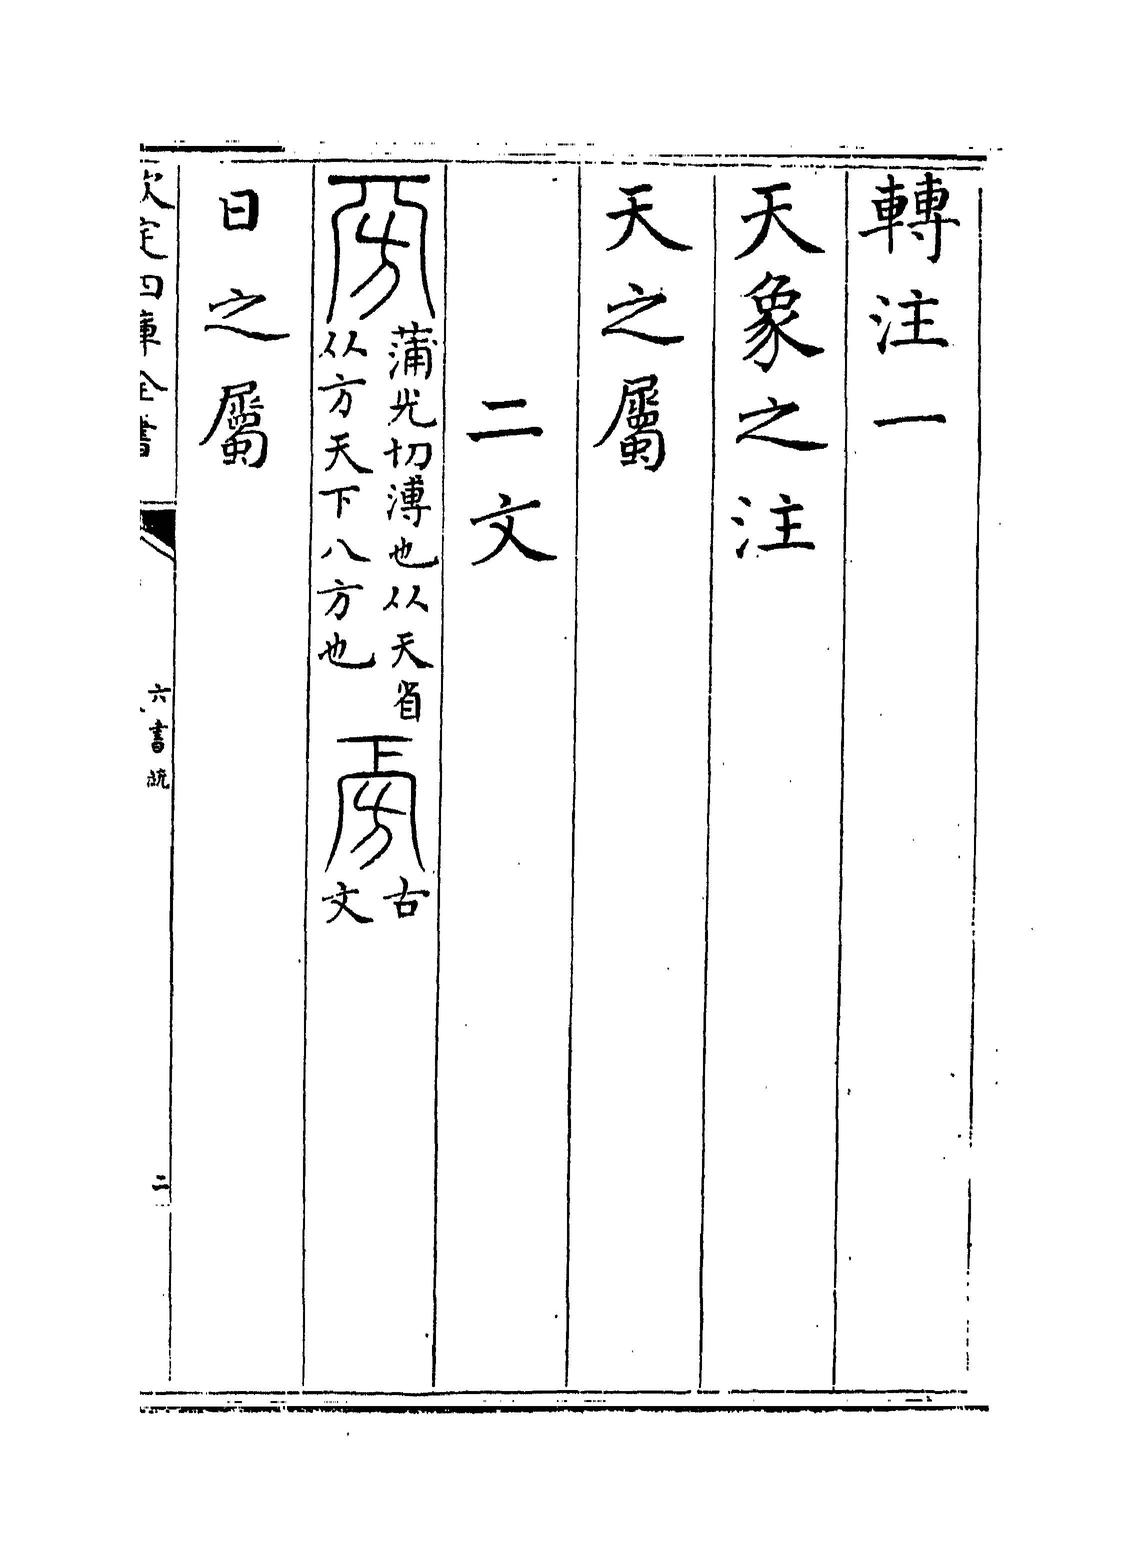 轉注一
天象之注
天之屬
二文
蒲光切溥也从天省
从方天下八方也
古
文
日之屬
欽定四庫全書
六書統
二